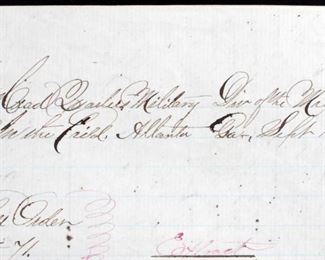 Head Quarters Military Div of the Mi
In the Field, Atlanta Ga, Sept
Order
71.
Extract